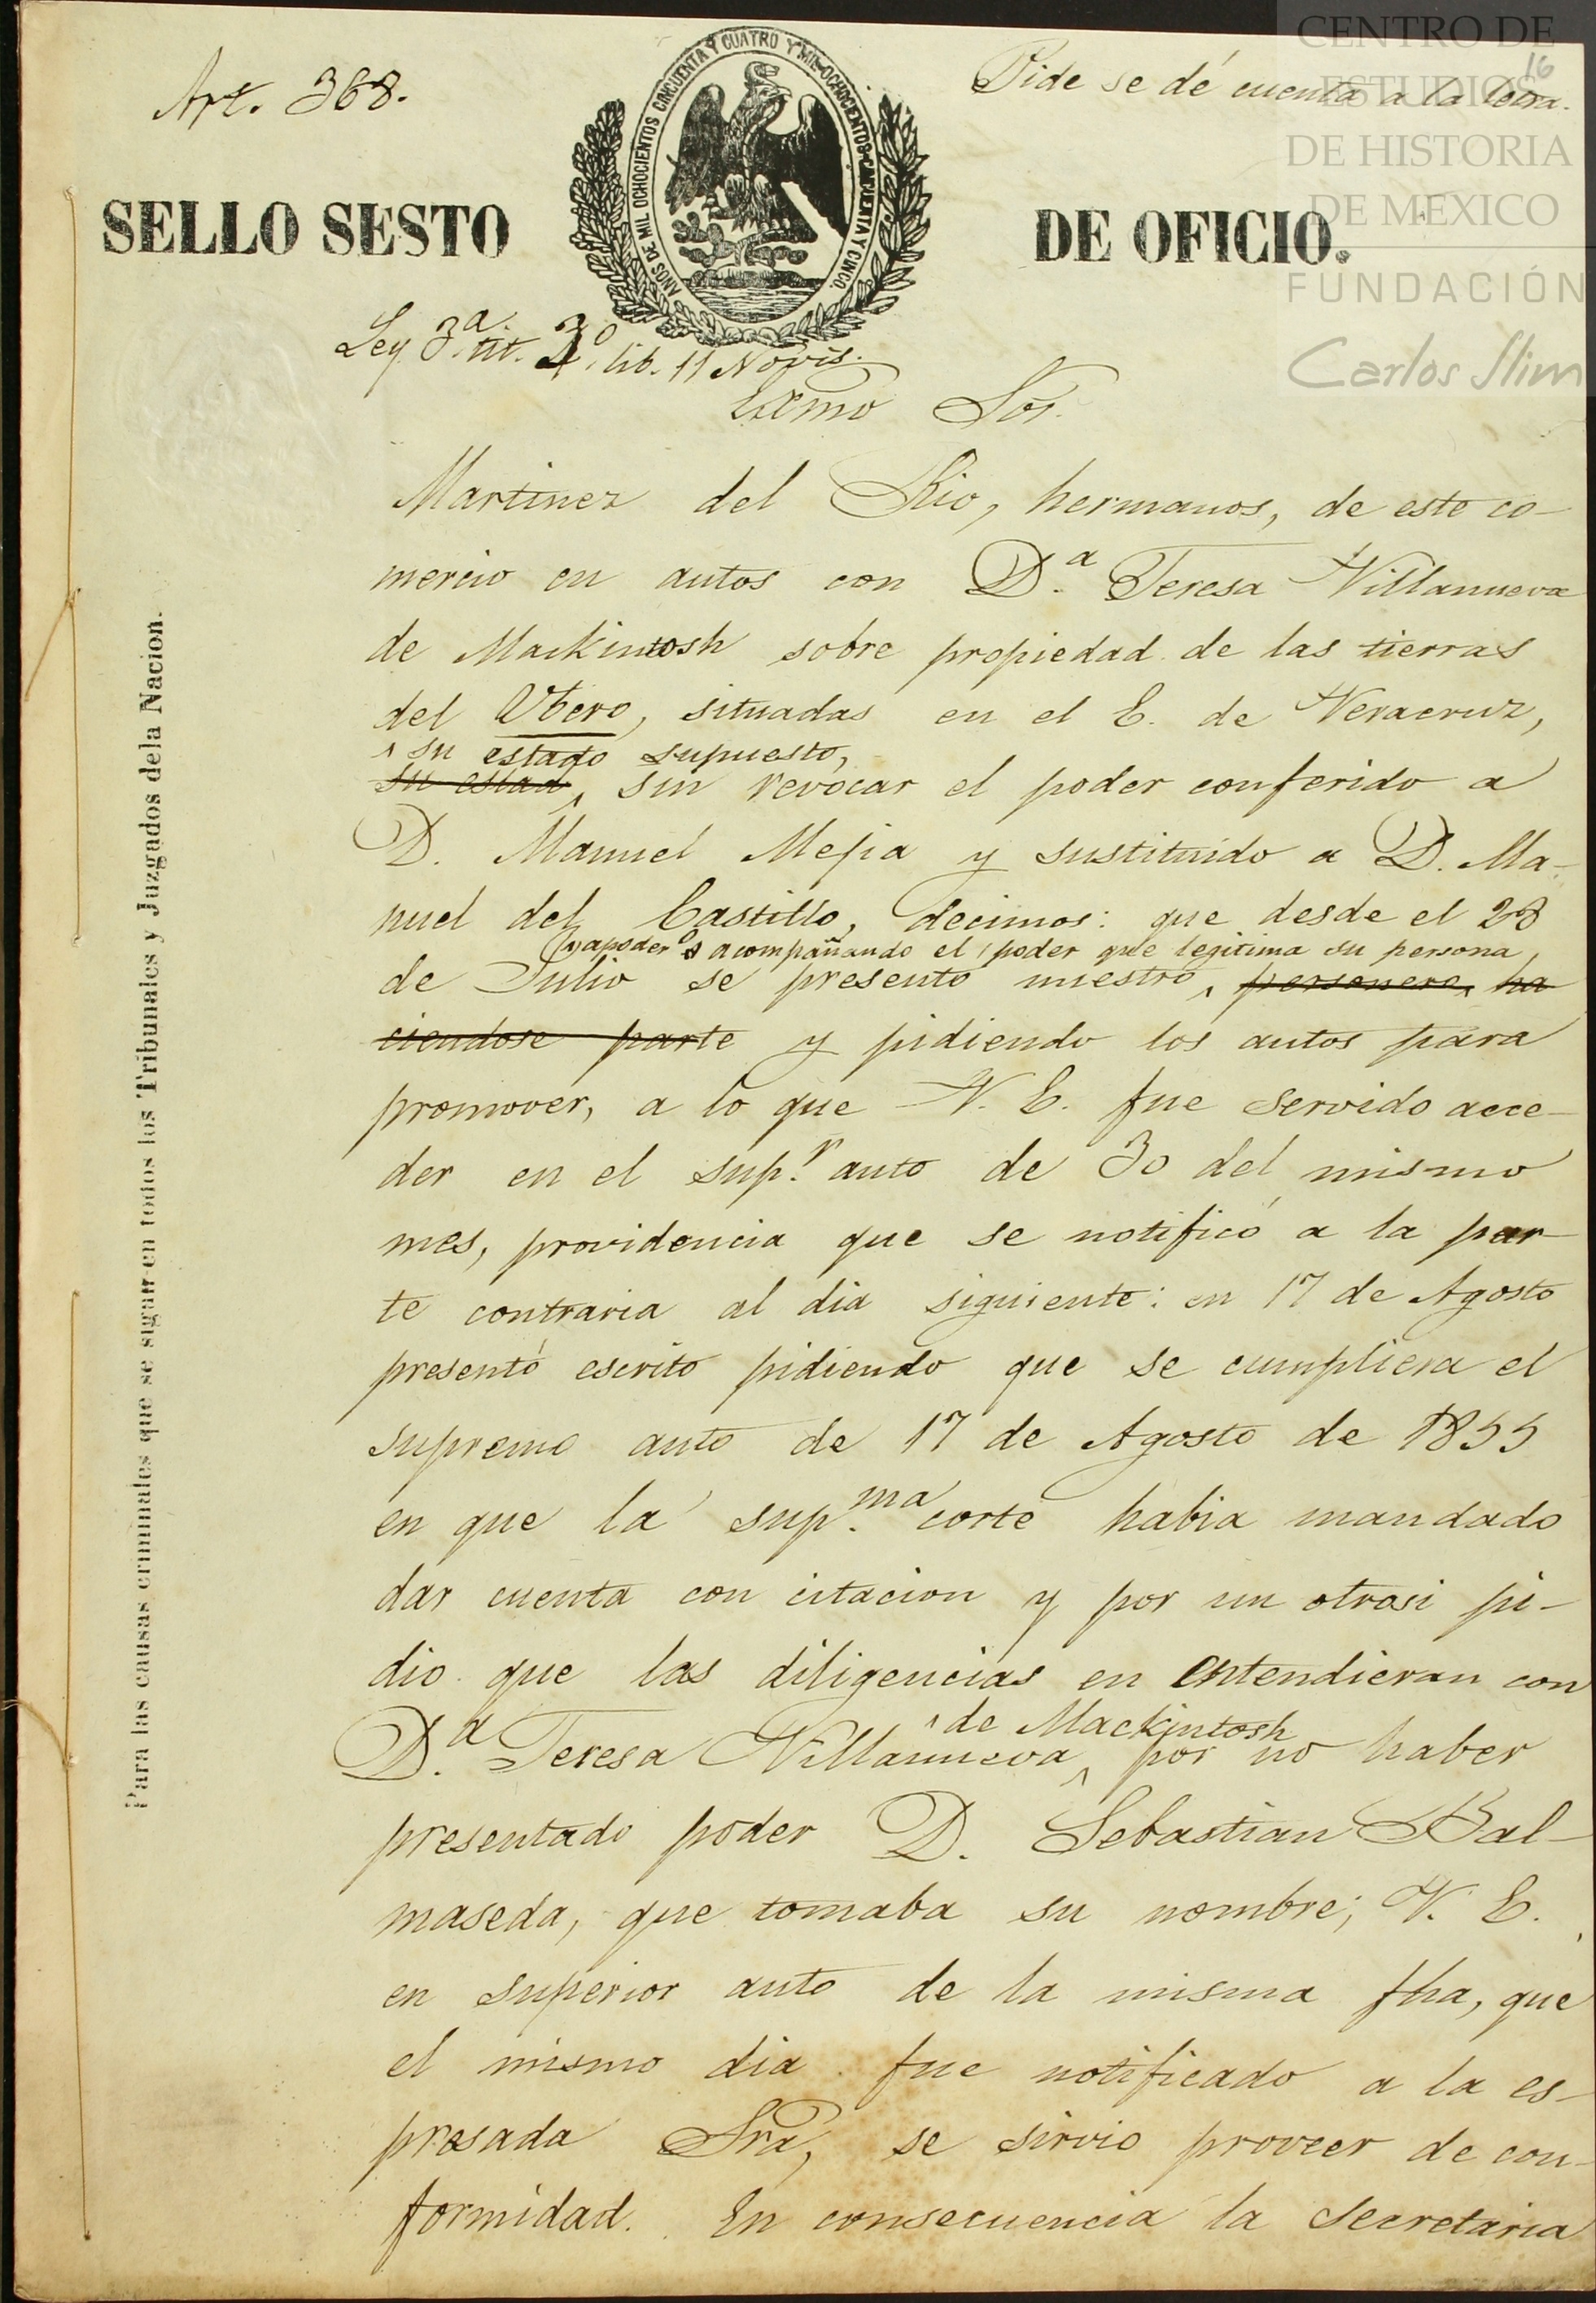 CENTRO DE
ESTUDIOS
DE HISTORIA
DE MEXICO
FUNDACIÓN
Carlos Slim
16
Art. 368.
Pide se dé cuenta a la letra.
SELLO SESTO
AÑOS DE MIL OCHOCIENTOS CINCUENTA Y CUATRO Y MIL OCHOCIENTOS CINCUENTA Y CINCO
DE OFICIO.
Ley 3.a tit. 3.o lib. 11 Novis.
Exmo Sor.
Martinez del Rio, hermanos, de este co-
mercio en autos con D.a Teresa Villanueva
de Mackintosh sobre propiedad de las tierras
del Vbero, situadas en el E. de Veracruz,
su estado supuesto,
su estad, sin revocar el poder conferido a
D. Manuel Mejia y sustituido a D. Ma-
nuel del Castillo, decimos: que desde el 28
apoder.o acompañando el poder que legitima su persona,
de Julio se presentó nuestro personero, ha
ciendose parte y pidiendo los autos para
promover, a lo que V. E. fue servido acce-
der en el sup.r auto de 30 del mismo
mes, providencia que se notificó a la par-
te contraria al dia siguiente: en 17 de Agosto
presentó escrito pidiendo que se cumpliera el
supremo auto de 17 de Agosto de 1855
en que la sup.ma corte habia mandado
dar cuenta con citacion y por un otrosi pi-
dio que las diligencias en entendieran con
de Mackintosh
D.a Teresa Villanueva, por no haber
presentado poder D. Sebastian Bal-
maseda, que tomaba su nombre; V. E.
en superior auto de la misma fha, que
el mismo dia fue notificado a la es-
presada Sra, se sirvio proveer de con-
formidad. En consecuencia la Secretaria
Para las causas criminales que se sigan en todos los Tribunales y Juzgados dela Nacion.